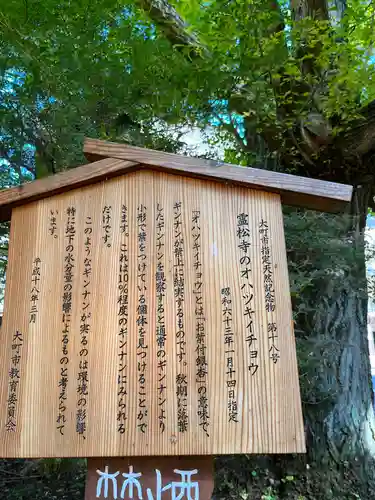 大町市指定天然記念物　第十八号
霊松寺のオハツキイチョウ
昭和六十三年一月十四日指定
「オハツキイチョウ」とは"お葉付銀杏"の意味で、
ギンナンが葉上に結実するものです。秋期に落葉
したギンナンを観察すると通常のギンナンより
小形で葉をつけている個体を見つけることがで
きます。これは10％程度のギンナンにみられる
だけです。
このようなギンナンが実るのは環境の影響、
特に地下の水分量の影響によるものと考えられて
います。
平成十八年三月
大町市教育委員会